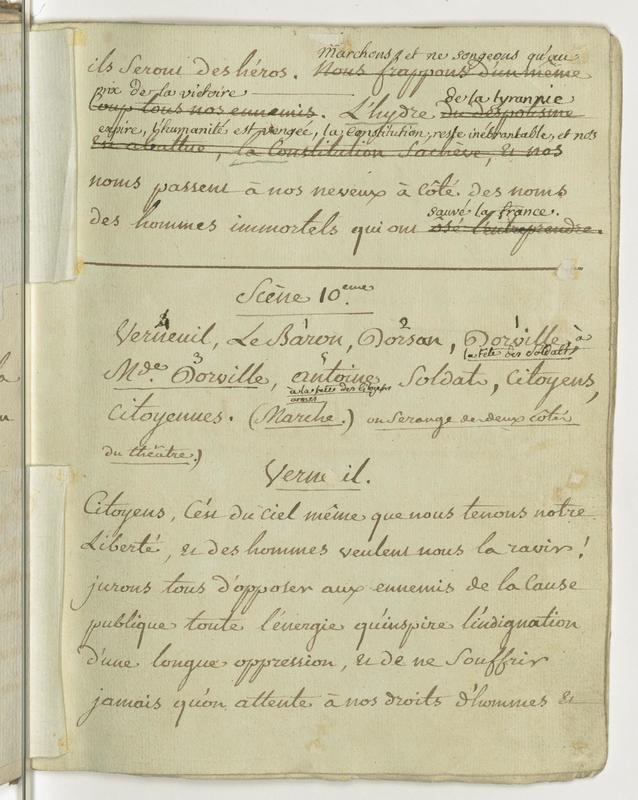 marchons, et ne songeons qu'au
ils seront des héros. Nous frappons d'un même
prix de la victoire
coup tous nos ennemis. L'hydre du despotisme
de la tyrannie
expire, l'humanité est vengée, la Constitution reste inébranlable, et nos
est abattue, la Constitution s'achève, et nos
noms passent à nos neveux à côté des noms
sauvé la france.
des hommes immortels qui ont osé l'entreprendre.
Scène 10.eme
4 2 1
Verneuil, Le Baron, Dorsan, Dorville, à
la tête des Soldats
3 5
Mde. Dorville, antoine, Soldats, Citoyens,
à la tête des Citoyens
armés
Citoyennes. (Marche.) on se range des deux côtés
du théâtre.)
Verneuil.
Citoyens, C'est du Ciel même que nous tenons notre
Liberté, et des hommes veulent nous la ravir!
jurons tous d'opposer aux ennemis de la Cause
publique toute l'énergie qu'inspire l'indignation
d'une longue oppression, et de ne Souffrir
jamais qu'on attente à nos droits d'hommes et